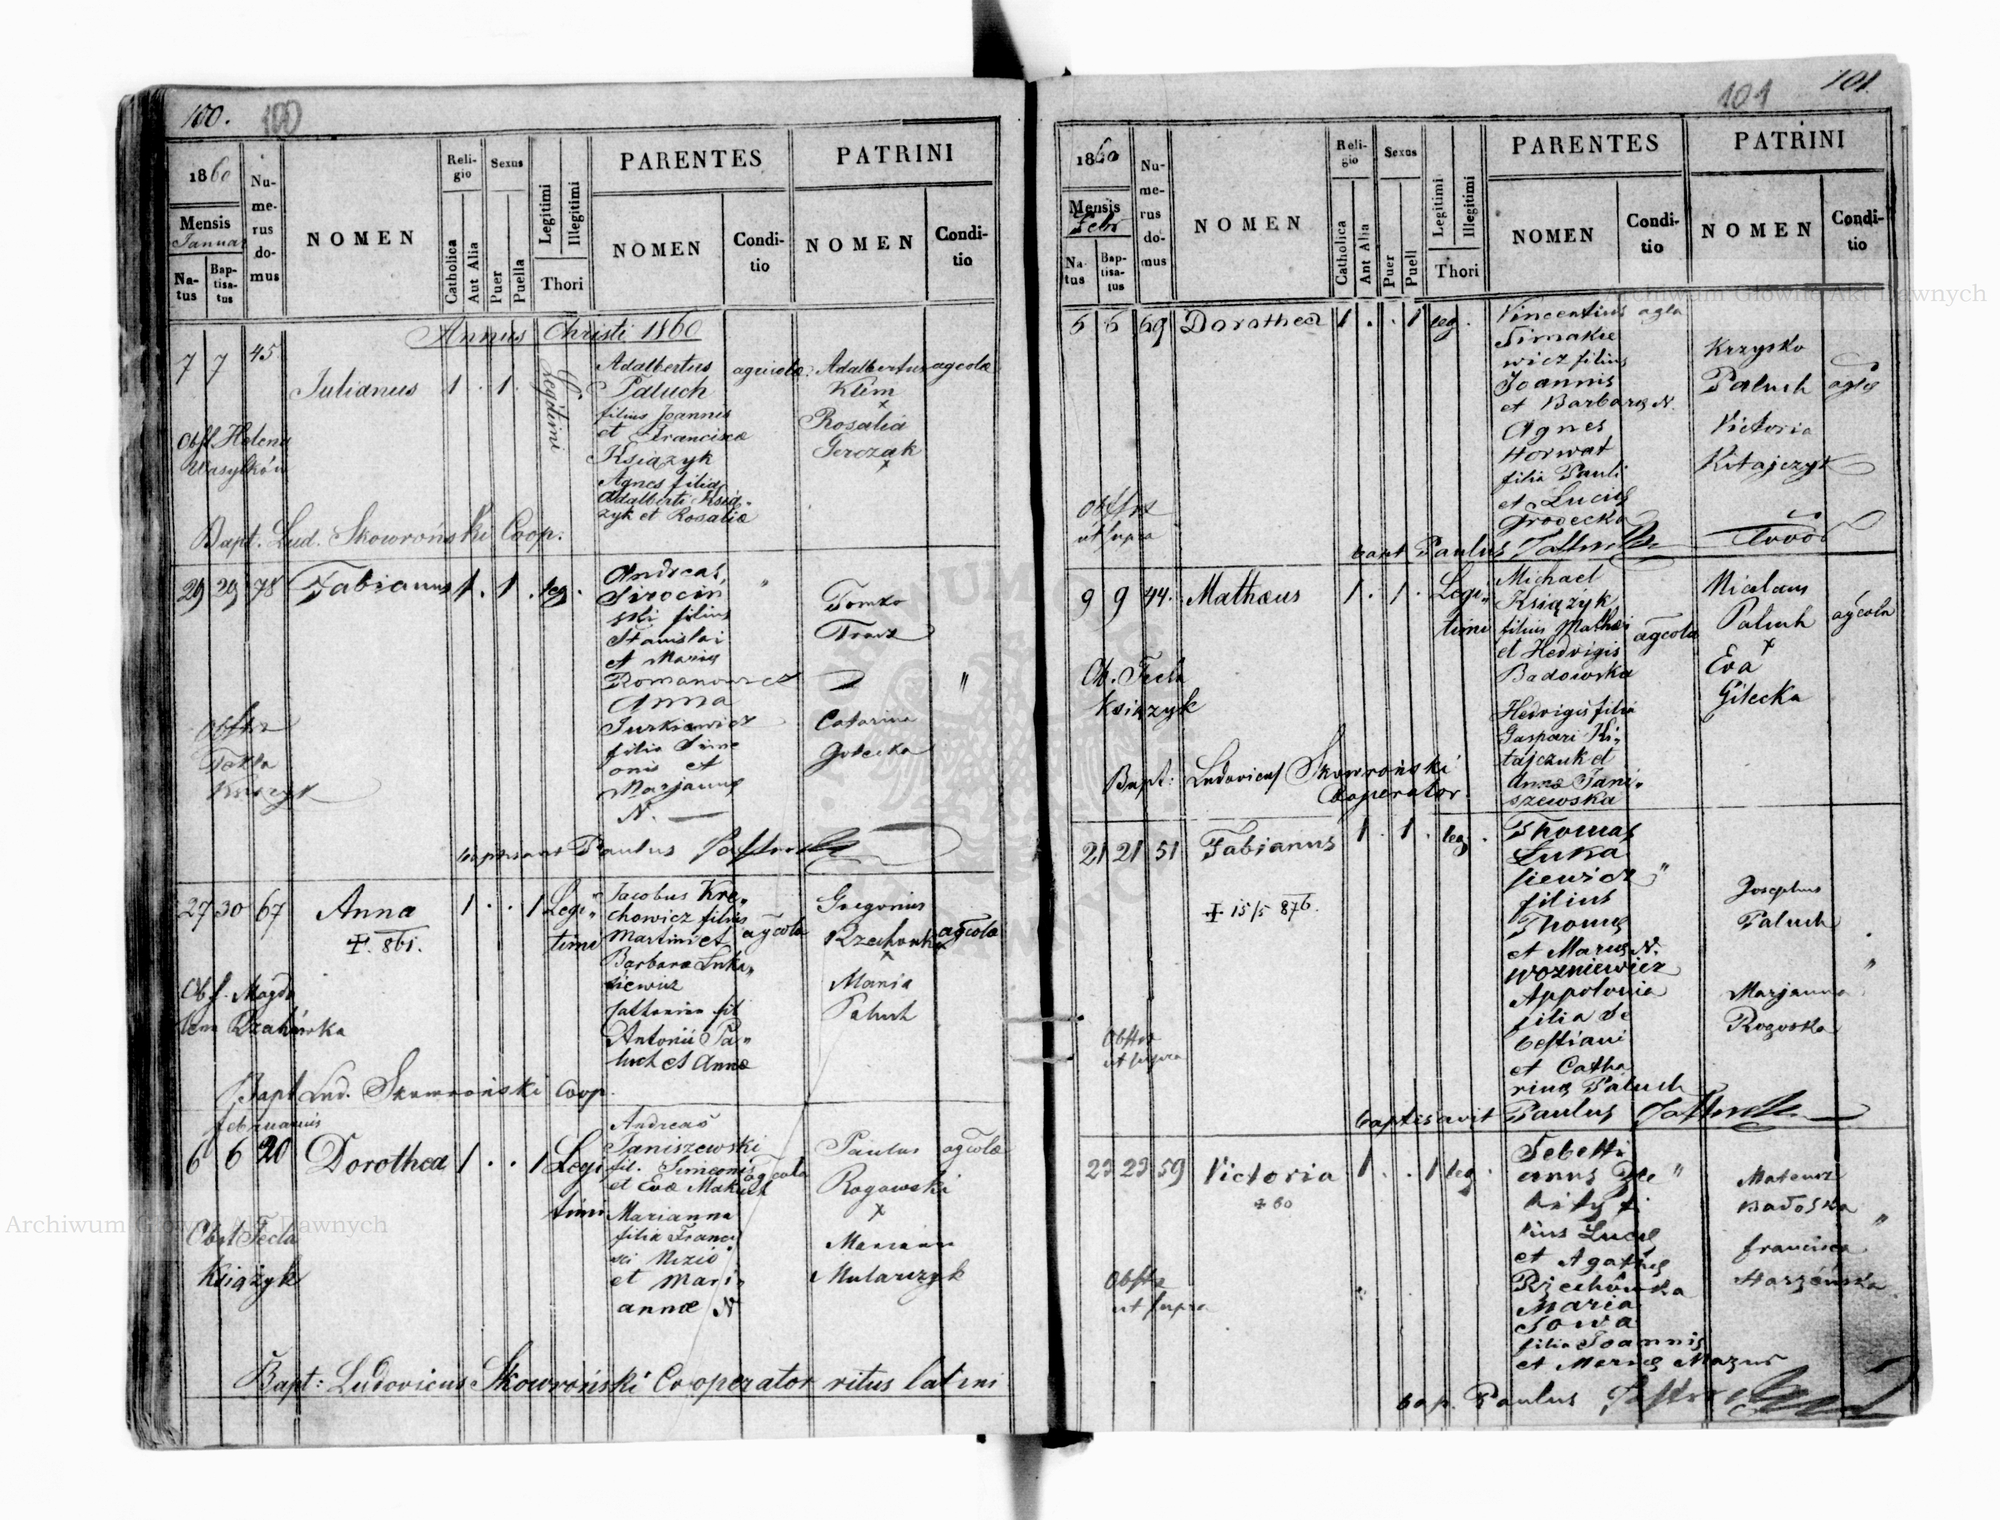 100.
100
1860
Mensis
Januar
Natus
Baptisatus
Numerus domus
NOMEN
Religio
Catholica
Aut Alia
Sexus
Puer
Puella
Legitimi
Illegitimi
Thori
PARENTES
NOMEN
Conditio
PATRINI
NOMEN
Conditio
Annus Christi 1860
7 7 45
Julianus 1 . 1 .
Legitimi
Adalbertus agricola
Paluch
filius Joannis
et Franciscæ
Książyk
Agnes filia
Adalberti Ksią-
zyk et Rosaliæ
Adalbertus agcola
Klim
x
Rosalia
Gerczak
x
Obst. Helena
Wasylków
Bapt. Lud. Skowroński Coop.
29 29 78 Fabianus 1 . 1 . leg .
Andreas "
Sirocin
ski filius
Stanislai
et Mariæ
Romanowicz
Anna
Jurkiewicz
filia Sime
onis et
Marjannæ
N.
Tomko
Tracz
"
Catarina
Gotecka
Obsttrx
Tekla
baptisavit Paulus
27 30 67 Anna 1 . . 1 Legi-
timi
+. 861.
Jacobus Kre-
chowicz filius
Martini et agcola
Barbaræ Luka-
siewicz
Catharina fil
Antonii Pa-
luch et Annæ
Gregorius
Rzechonka agcola
x
Maria
Paluch
Obst. Magda
lena Rzechówka
Bapt Lud. Skowroński Coop
februarius
6 6 20 Dorothea 1 . . 1 Legi
timi
Andreas
Taniszewski
fil. Simeonis agcola
et Evæ Makuch
Marianna
filia Franci
sci Nizio
et Mari-
annæ N
Paulus agcola
Rogowski
x
Marianna
Mularczyk
Obst Tecla
Książyk
Bapt: Ludovicus Skowroński Cooperator ritus latini
101
101
1860
Mensis
Febr
Natus
Baptisatus
Numerus domus
NOMEN
Religio
Catholica
Ant Alia
Sexus
Puer
Puell
Legitimi
Illegitimi
Thori
PARENTES
NOMEN
Conditio
PATRINI
NOMEN
Conditio
6 6 69 Dorothea 1 . . 1 leg .
Vincentius agla
Simakie
wicz filius
Joannis
et Barbaræ N.
Agnes
Horwat
filia Pauli
et Luciæ
Grodecka
Krzysko
Paluch agla
Victoria
Kitajczyk
Obsttrx
ut supra
bapt Paulus
9 9 44. Mathæus 1 . 1 . Legi-
timi
Michael
Książyk
filius Mathæi agcola
et Hedvigis
Badowska
Hedvigis filia
Gaspari Ki-
tajczuk et
Annæ Tani-
szewska
Nicolaus
Paluch agcola
x
Eva
Gitecka
Ob. Tecla
Książyk
Bapt: Ludovicus Skowroński
Cooperator.
21 21 51 Fabianus 1 . 1 . leg .
+ 15/5 876.
Thomas
Luka
siewicz "
filius
Thomæ
et Mariæ N.
Wozniewicz
Appolonia
filia Se
bestiani
et Catha
rinæ Paluch
Josephus
Paluch
"
Marjanna
Rogoska
Obsttrx
ut supra
baptisavit Paulus
23 23 59 Victoria 1 . . 1 leg .
+ 60
Sebesti
anus "
filius Lucæ
et Agathæ
Rzechówka
Maria
Sowa
filia Joannis
et Mariæ Mazur
Mateusz
Badoska
"
francisca
Obsttrx
ut supra
bap. Paulus
Archiwum Główne Akt Dawnych
Archiwum Główne Akt Dawnych